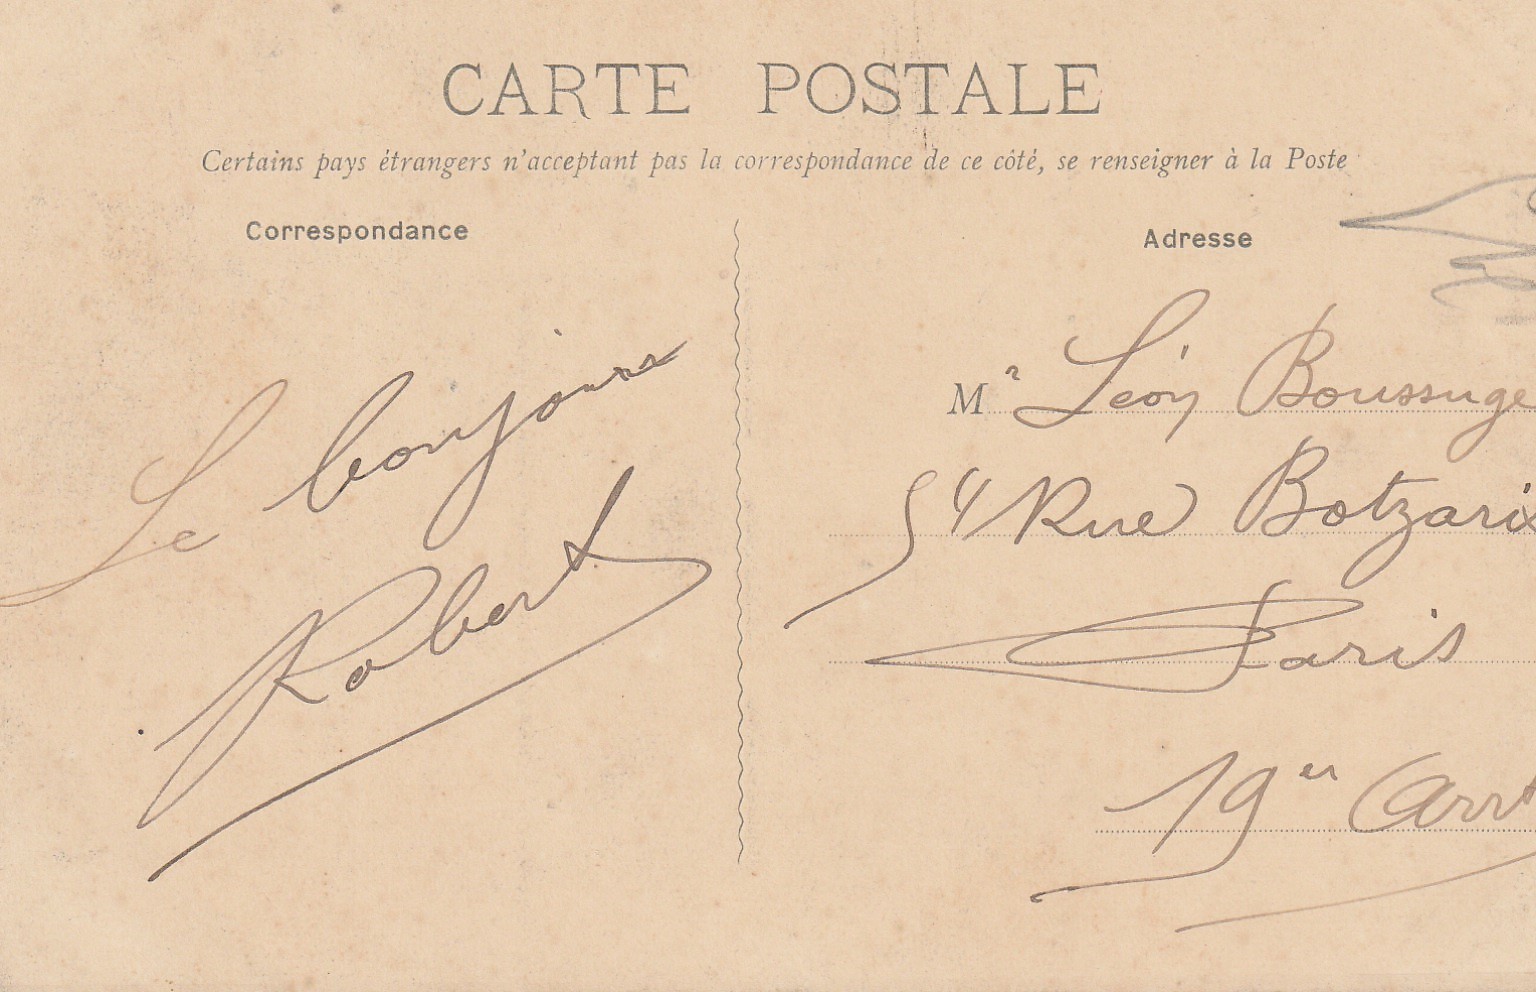 CARTE POSTALE
Certains pays étrangers n'acceptant pas la correspondance de ce côté, se renseigner à la Poste
Correspondance
Le bonjour
Robert
Adresse
Mr Léon Boussuge
54 Rue Botzaris
Paris
19er Arrt